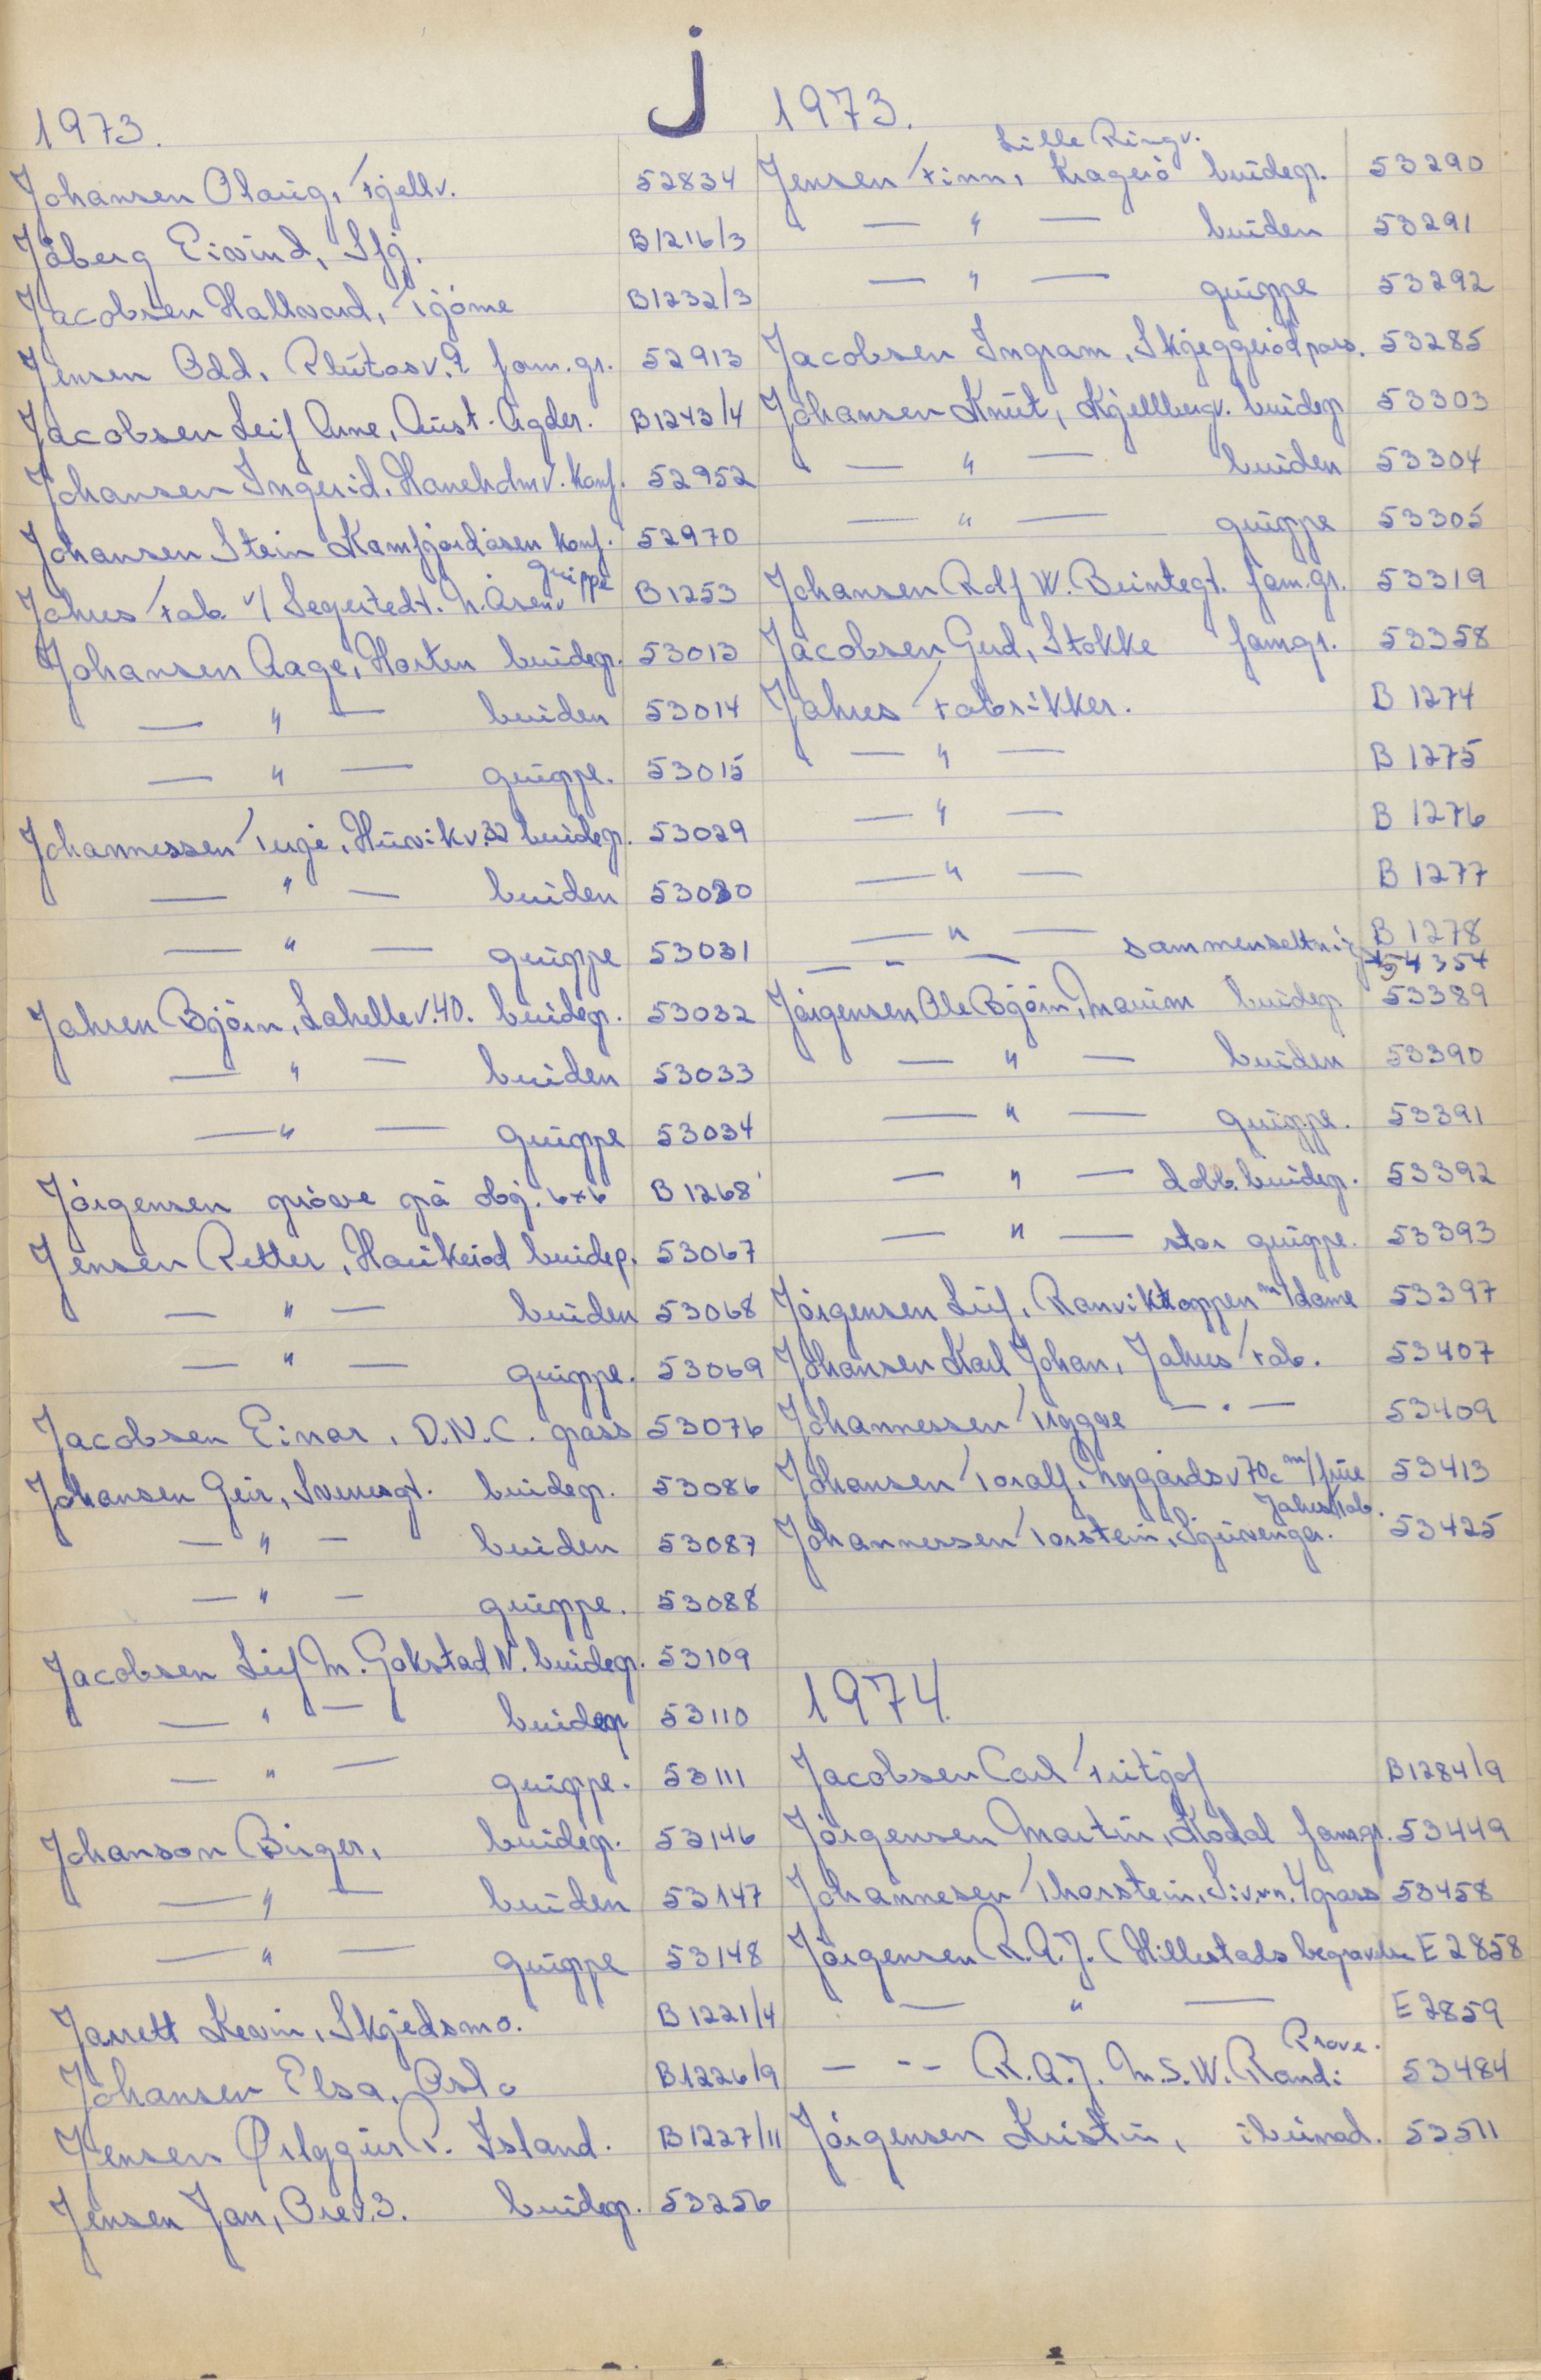 J
1973.
Johansen Olaug, Fjellv. 52834
Jåberg Eivind, Sfj. B1216/3
Jacobsen Hallvard, Tjöme B1232/3
Jensen Odd, Plutosv. 9 fam.gr. 52913
Jacobsen Leif Arne, Aust-Agder. B1243/4
Johansen Ingerid, Haneholmv. konf. 52952
Johansen Stein Kamfjordåsen konf. 52970
gruppe
Jahres Fab. v/ Segerstedt. N. Åsenv B1253
Johansen Aage, Horten brudep. 53013
— " — bruden 53014
— " — gruppe. 53015
Johannessen Terje, Huvikv. 32 brudep. 53029
— " — bruden 53030
— " — gruppe 53031
Jahren Björn, Lahellev. 40. brudep. 53032
— " — bruden 53033
— " — gruppe 53034
Jörgensen pröve på obj. 6x6 B1268
Jensen Petter, Haukeröd brudep. 53067
— " — bruden 53068
— " — gruppe. 53069
Jacobsen Einar, D.N.C. pass 53076
Johansen Geir, Svenesgt. brudep. 53086
— " — bruden 53087
— " — gruppe. 53088
Jacobsen Leif M. Gokstad N. brudep. 53109
— " — brudep 53110
— " — gruppe. 53111
Johanson Birger, brudep. 53146
— " — bruden 53147
— " — gruppe 53148
Jarrett Kevin, Skjedsmo. B1221/4
Johansen Elsa, Oslo B1226/9
Jensen P. Island. B1227/11
Jensen Jan, Orev. 3. brudep. 53256
1973.
Lille Ringv.
Jensen Finn, Kragerö brudep. 53290
— " — bruden 53291
— " — gruppe 53292
Jacobsen Ingram, Skjeggeröd pass. 53285
Johansen Knut, Kjellbergv. brudep 53303
— " — bruden 53304
— " — gruppe 53305
Johansen Rolf W. Bruntegt. fam.gr. 53319
Jacobsen Gerd, Stokke famgr. 53358
Jahres Fabrikker. B 1274
— " — B 1275
— " — B 1276
— " — B 1277
— " — B 1278
— " — sammensetning 54354
Jörgensen Ole Björn, Marum brudep 53389
— " — bruden 53390
— " — gruppe. 53391
— " — dobb. brudep. 53392
— " — stor gruppe. 53393
Jörgensen Leif, Ranviktoppen m/dame 53397
Johansen Karl Johan, Jahres Fab. 53407
Johannessen Tryggve — " — 53409
Johansen Toralf, Nygårdsv 70c m/frue 53413
Jahres Fab.
Johannessen Torstein, Sjuvenga. 53425
1974
Jacobsen Carl Fritjof B1284/9
Jörgensen Martin, Kodal famgr. 53449
Johannesen Thorstein, 4 pass 53458
Jörgensen R.A.J. (Hillestads begravelse E2858
— " — E2859
Prøve.
— " — R.A.J. M.S.W. Randi 53484
Jörgensen Kristin, i bunad. 53511